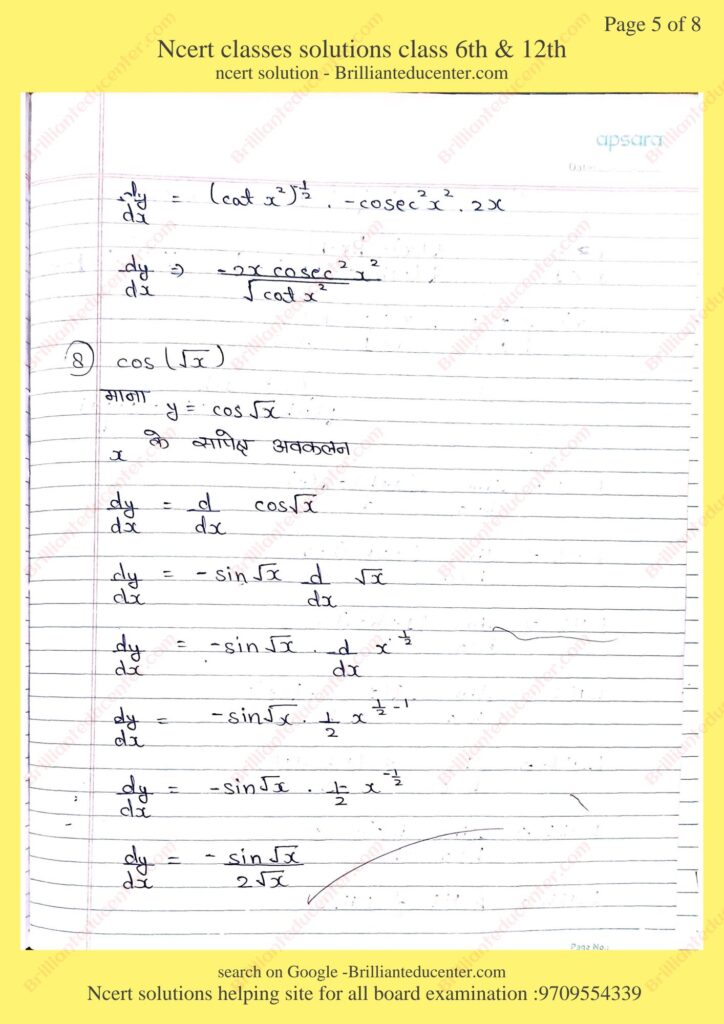 Page 5 of 8
Ncert classes solutions class 6th & 12th
ncert solution - Brillianteducenter.com
apsara
Date:
dy/dx = (cot x²)^½ . -cosec²x² . 2x
dy/dx ⇒ -2x cosec² x² / √cot x²
⑧ cos (√x)
माना y = cos√x.
x के सापेक्ष अवकलन
dy/dx = d/dx cos√x
dy/dx = -sin√x d/dx √x
dy/dx = -sin√x . d/dx x^½
dy/dx = -sin√x . 1/2 x^(½-1)
dy/dx = -sin√x . 1/2 x^(-½)
dy/dx = - sin√x / 2√x
Page No.:
search on Google -Brillianteducenter.com
Ncert solutions helping site for all board examination :9709554339